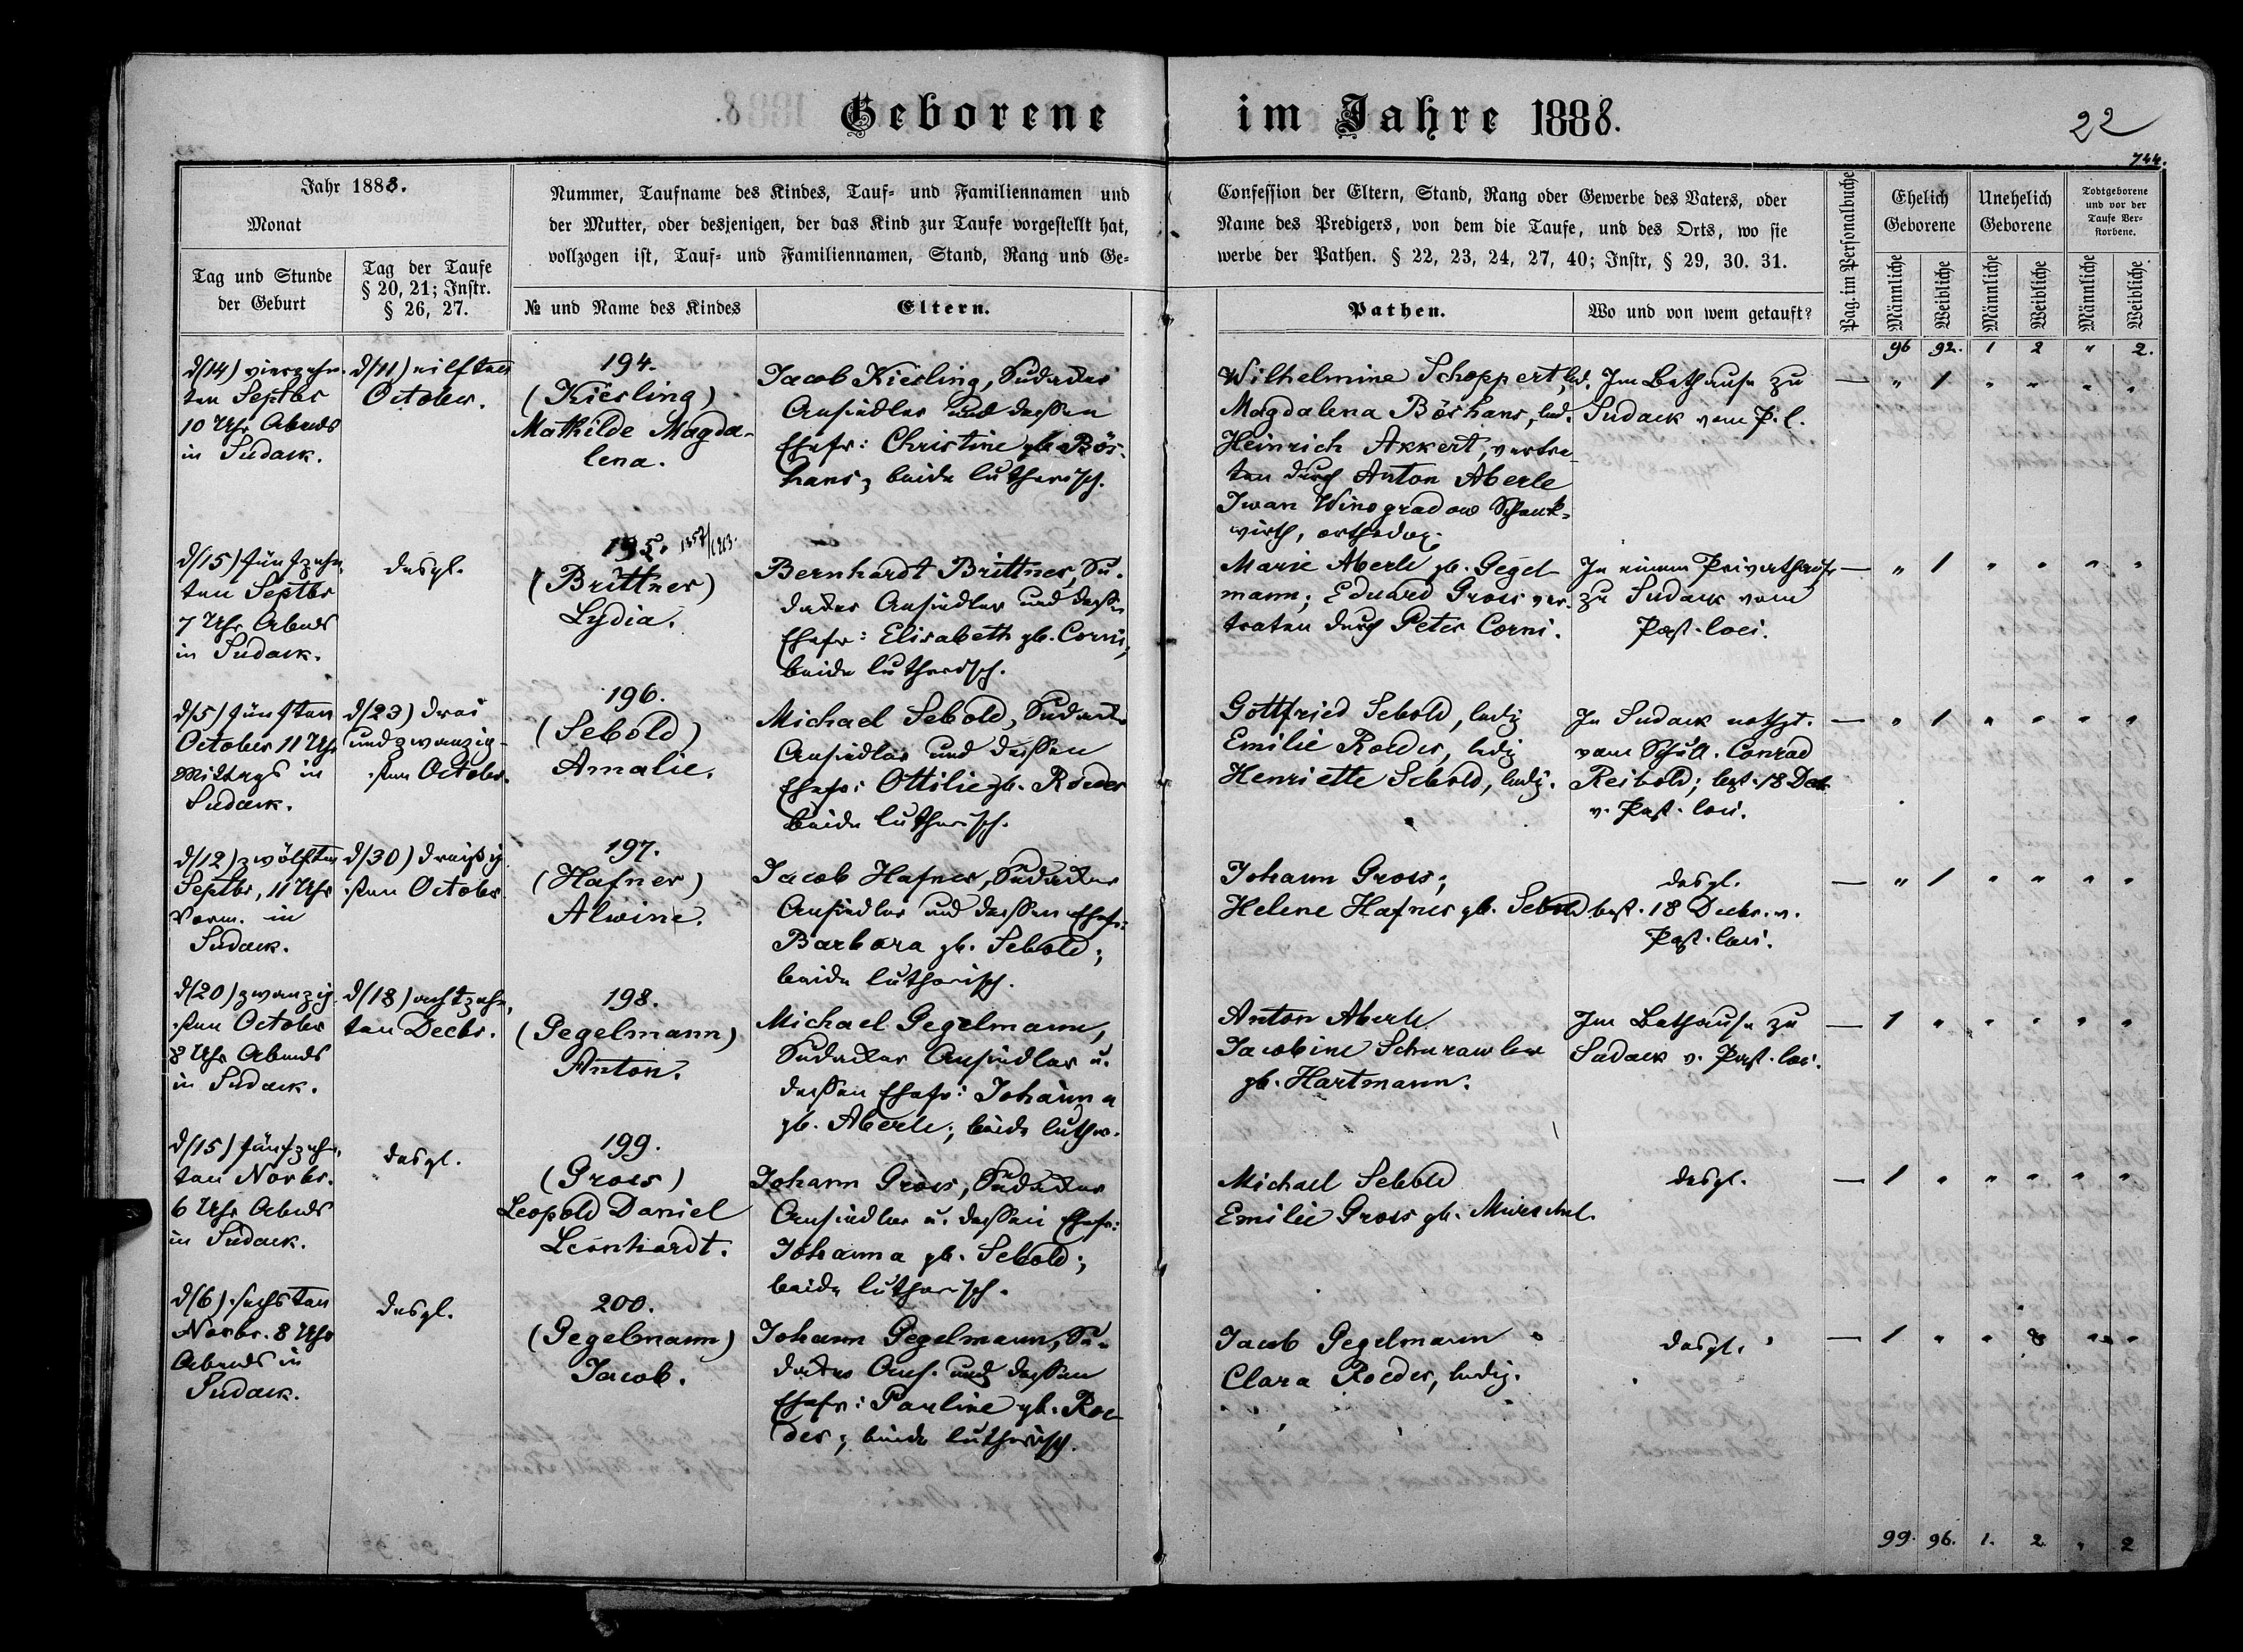 Geborene im Jahre 1888.
22
744.
Jahr 1888.
Monat
Tag und Stunde
der Geburt
Tag der Taufe
§ 20, 21; Instr.
§ 26, 27.
Nummer, Taufname des Kindes, Tauf- und Familiennamen und
der Mutter, oder desjenigen, der das Kind zur Taufe vorgestellt hat,
vollzogen ist, Tauf- und Familiennamen, Stand, Rang und Ge-
№ und Name des Kindes
Eltern.
Confession der Eltern, Stand, Rang oder Gewerbe des Vaters, oder
Name des Predigers, von dem die Taufe, und des Orts, wo sie
werbe der Pathen. § 22, 23, 24, 27, 40; Instr, § 29, 30. 31.
Pathen.
Wo und von wem getauft?
Pag. im Personalbuche
Ehelich
Geborene
Unehelich
Geborene
Todtgeborene
und vor der
Taufe Ver-
storbene.
Männliche
Weibliche
Männliche
Weibliche
Männliche
Weibliche
96 92. 1 2 " 2.
d/(14) vierzehn-
ten Septbr
10 Uhr Abends
in Sudack.
d/(11) eilften
October.
194.
(Kiesling)
Mathilde Magda-
lena.
Jacob Kiesling, Sudacker
Ansiedler und dessen
Ehefr: Christine gb. Bös-
hans; beide lutherisch.
Wilhelmine Schoppert, led.
Magdalena Böshans, led.
Heinrich Akkert, vertre-
ten durch Anton Aberle
Iwan Winogradow Schenk-
wirth, orthodox.
Im Bethause zu
Sudack vom P. l.
— " 1 " " " "
d/(15) fünfzehn-
ten Septbr
7 Uhr Abends
in Sudack.
desgl.
195.
(Brittner)
Lydia.
Bernhardt Brittner, Su-
dacker Ansiedler und dessen
Ehefr: Elisabeth gb. Corni,
beide lutherisch.
Marie Aberle gb. Gegel-
mann; Eduard Gross ver-
treten durch Peter Corni.
In einem Privathause
zu Sudack vom
Past. loci.
— " 1 " " " "
d/(5) fünften
October 11 Uhr
Mittags in
Sudack.
d/(23) drei
und zwanzig-
sten October.
196.
(Sebold)
Amalie.
Michael Sebold, Sudacker
Ansiedler und dessen
Ehefr: Ottilie gb. Roeder
beide lutherisch.
Gottfried Sebold, ledig
Emilie Roeder, ledig
Henriette Sebold, ledig.
In Sudack nothgt.
vom Schull. Conrad
Reibold; best. 18 Decb.
v. Past. loci.
— " 1 " " " "
d/(12) zwölften
Septbr, 11 Uhr
Vorm. in
Sudack.
d/(30) dreißig-
sten October
197.
(Hafner)
Alwine.
Jacob Hafner, Sudacker
Ansiedler und dessen Ehefr:
Barbara gb. Sebold;
beide lutherisch.
Johann Gross;
Helene Hafner gb. Sebold
desgl.
best. 18 Decbr. v.
Past. loci.
— " 1 " " " "
d/(20) zwanzig-
sten October
8 Uhr Abends
in Sudack.
d/(18) achtzehn-
ten Decbr.
198.
(Gegelmann)
Anton.
Michael Gegelmann,
Sudacker Ansiedler u.
dessen Ehefr: Johanna
gb. Aberle; beide luther.
Anton Aberle
Jacobine Schurawlew
gb. Hartmann.
Im Bethause zu
Sudack v. Past. loci.
— 1 " " " " "
d/(15) fünfzehn-
ten Novbr.
6 Uhr Abends
in Sudack.
desgl.
199.
(Gross)
Leopold Daniel
Leonhardt.
Johann Gross, Sudacker
Ansiedler u. dessen Ehefr:
Johanna gb. Sebold;
beide lutherisch.
Michael Sebold
Emilie Gross gb.
desgl.
— 1 " " " " "
d/(6) sechsten
Novbr. 8 Uhr
Abends in
Sudack.
desgl.
200.
(Gegelmann)
Jacob.
Johann Gegelmann, Su-
dacker Ans. und dessen
Ehefr: Pauline gb. Roe-
der; beide lutherisch.
Jacob Gegelmann
Clara Roeder, ledig.
desgl.
— 1 " " " "
99. 96. 1. 2. " 2